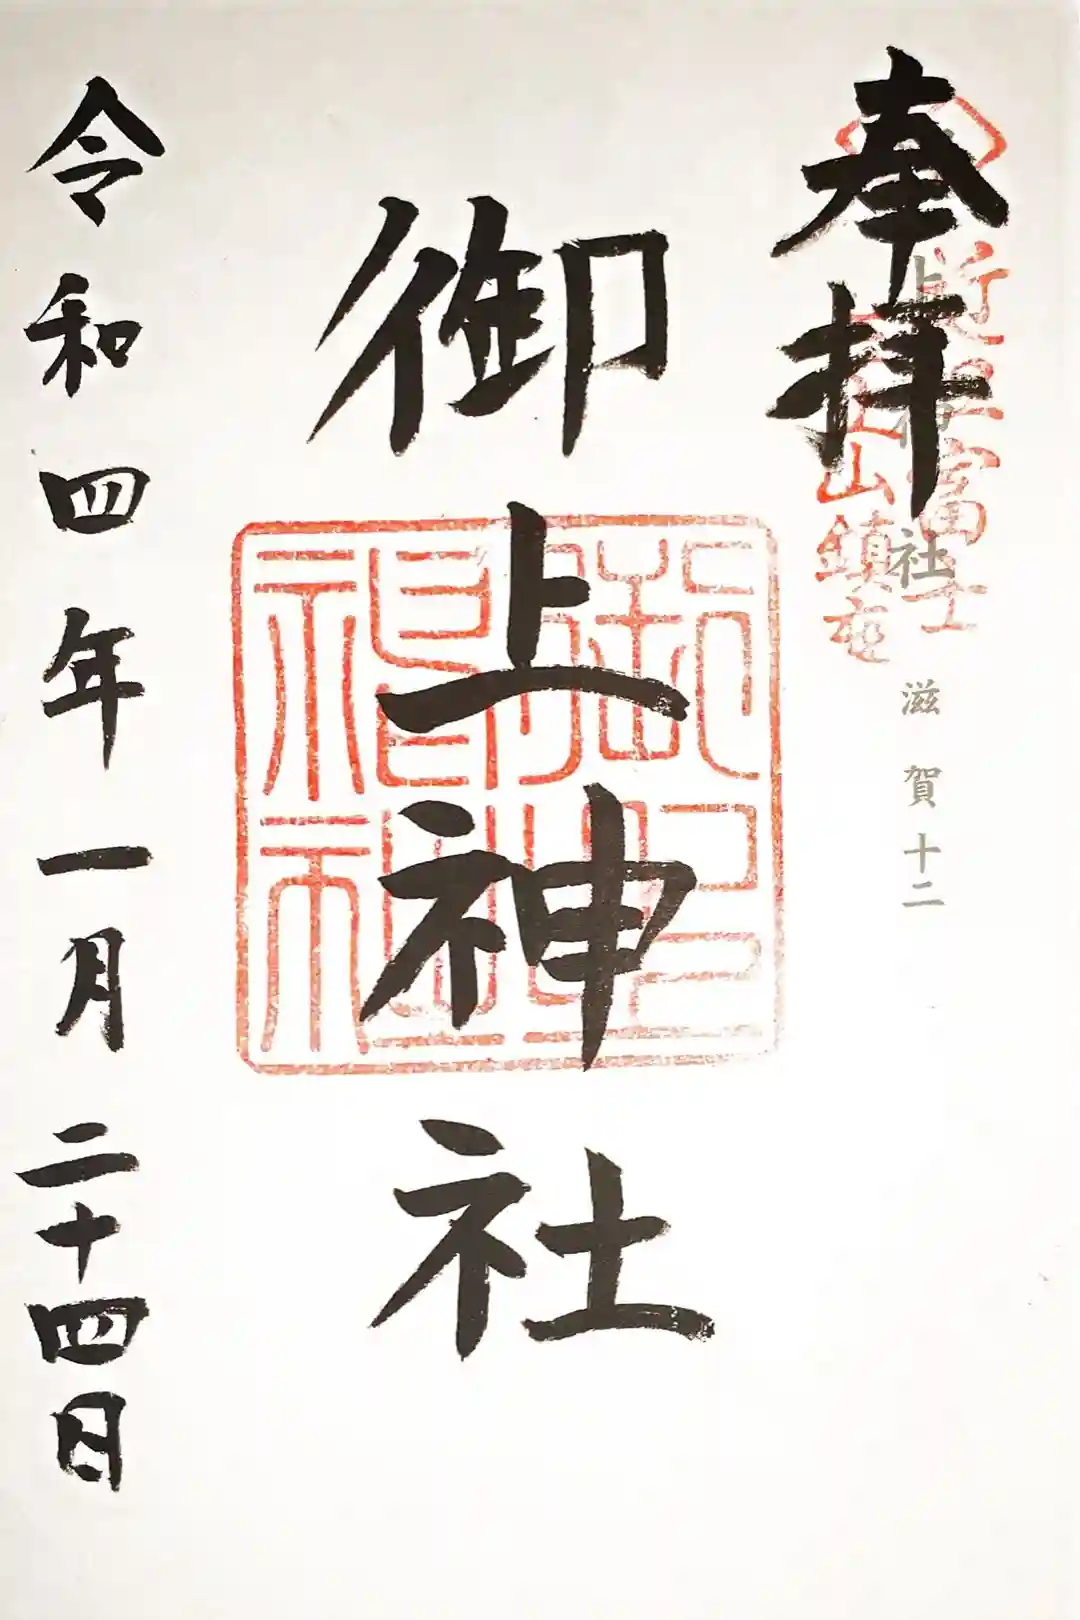 奉拝
近江富士
三上山鎮座
社 滋賀十二
御上神社
令和四年一月二十四日